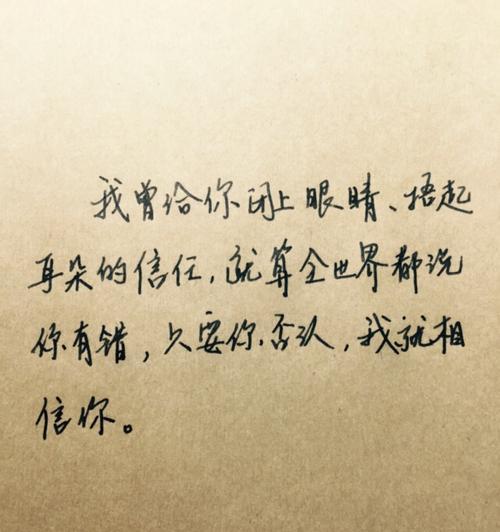 我曾给你闭上眼睛、捂起
耳朵的信任，就算全世界都说
你有错，只要你否认，我就相
信你。